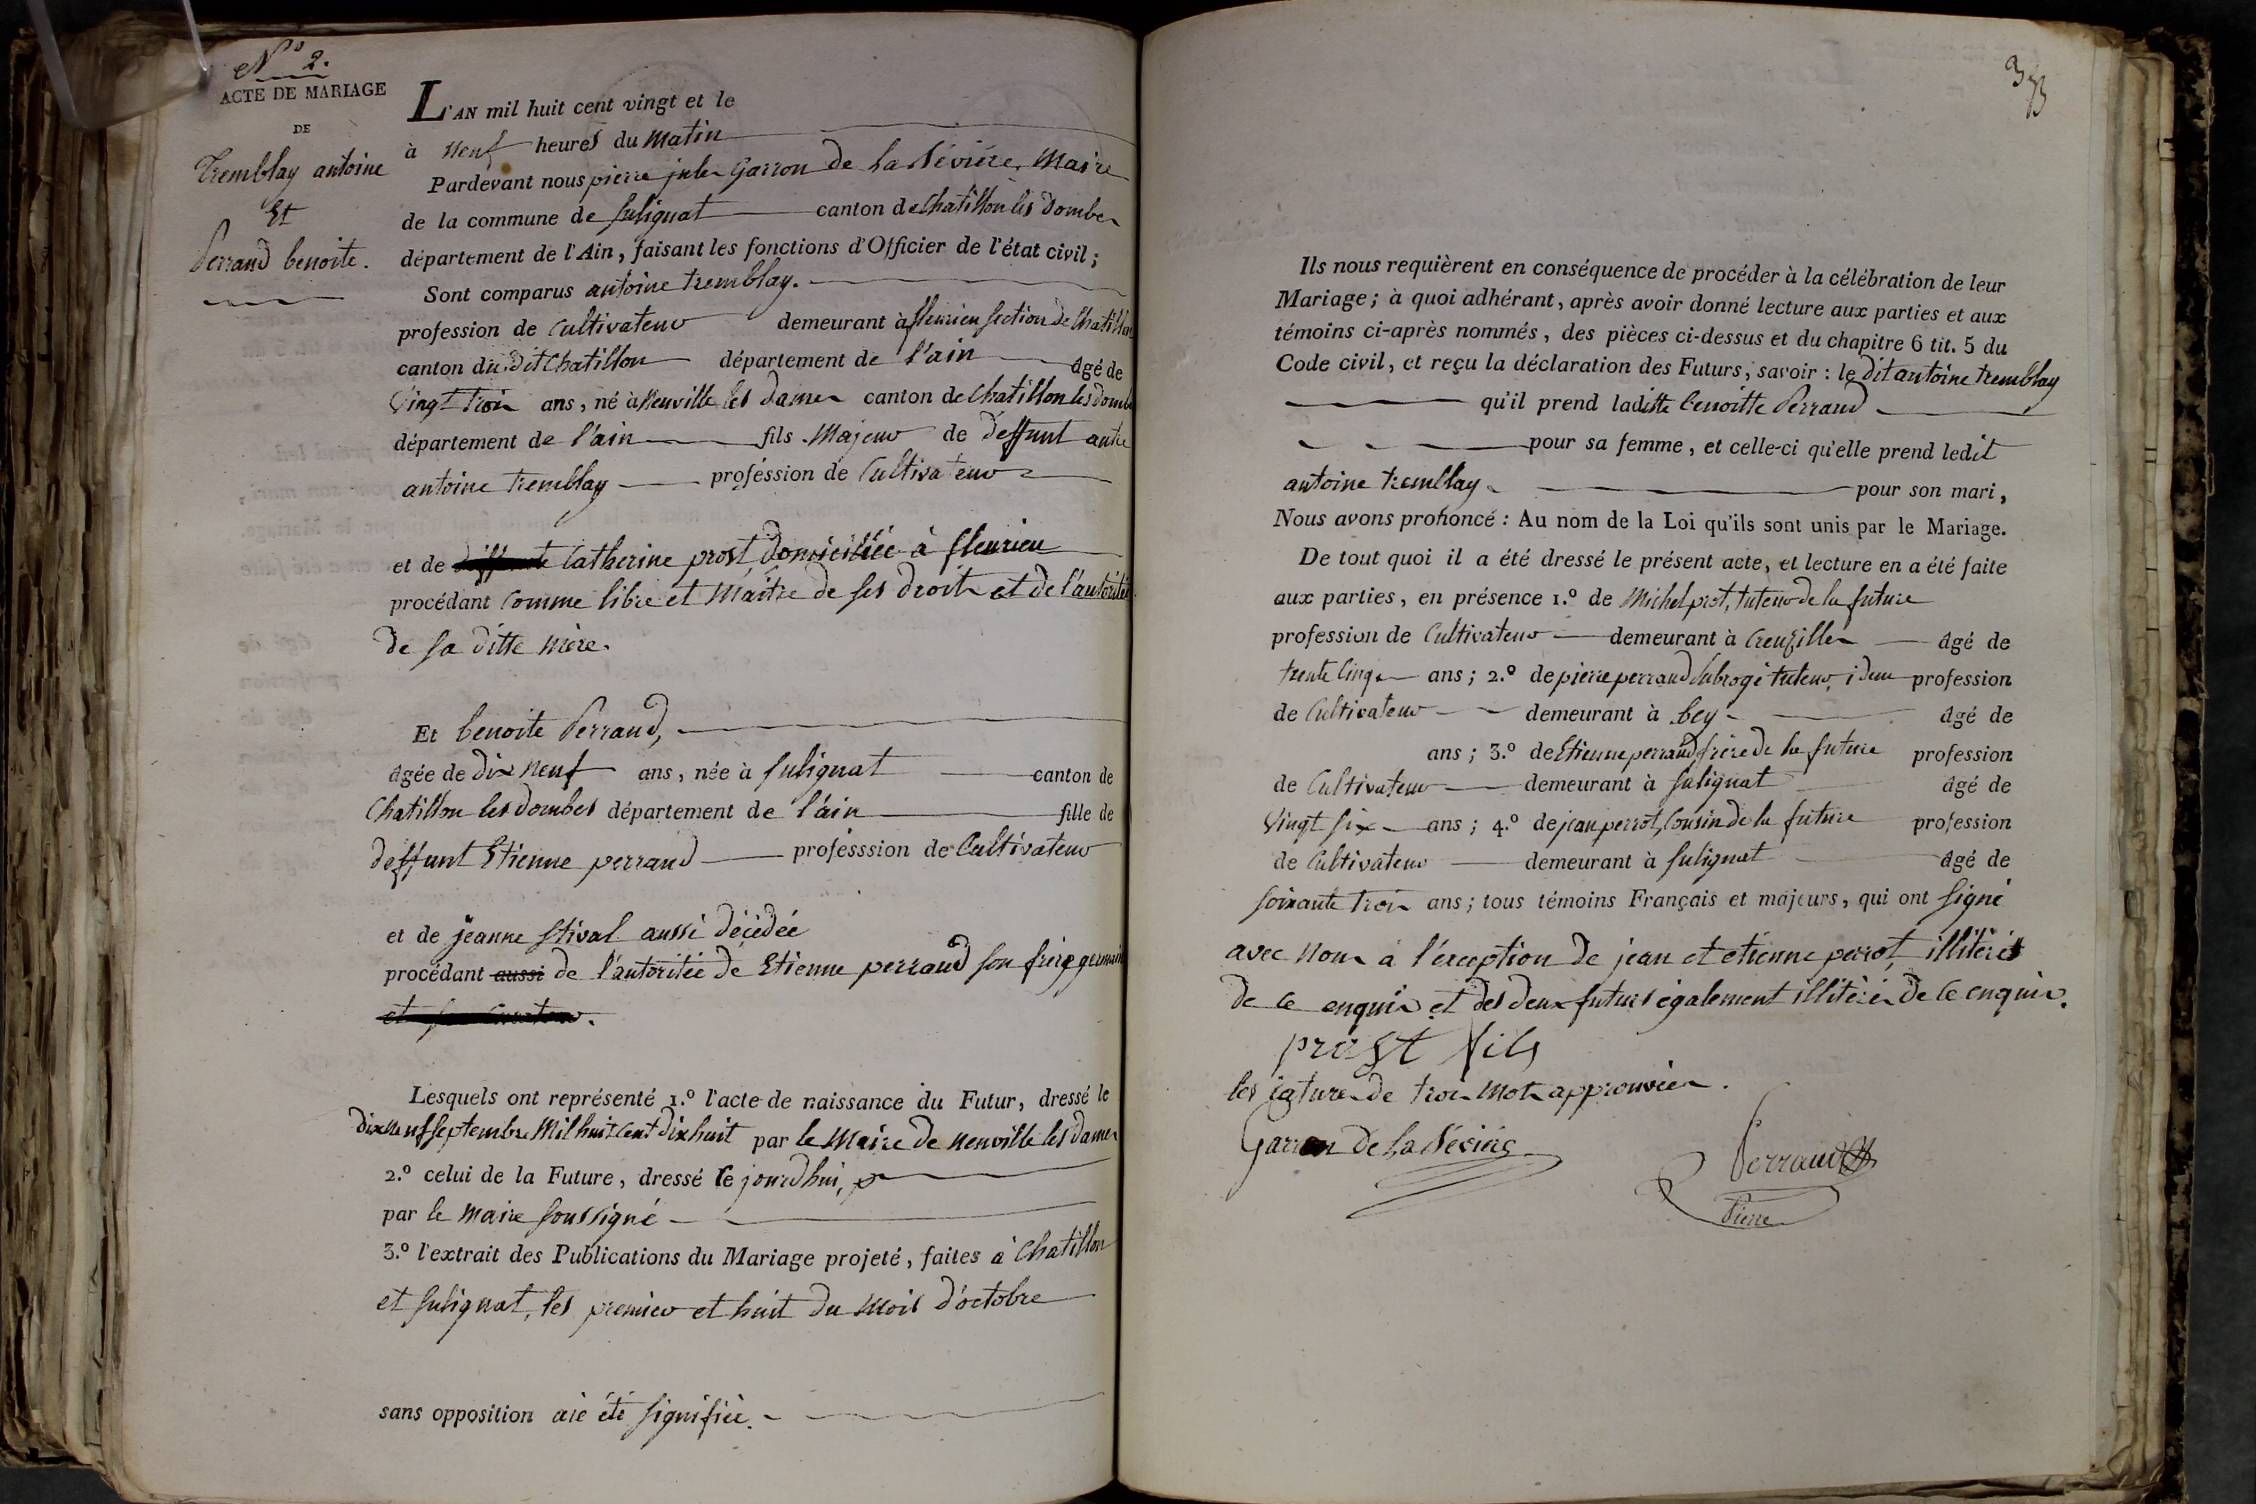 N° 2.
ACTE DE MARIAGE
DE
Tremblay antoine
Et
Perrand benoite.
L'AN mil huit cent vingt et le
à neuf heures du matin
Pardevant nous pierre jules Garron de la Sévière, Maire
de la commune de Sulignat canton de Chatillon les Dombes
département de l'Ain, faisant les fonctions d'Officier de l'état civil;
Sont comparus antoine tremblay.
profession de Cultivateur demeurant à fleurieu section de Chatillon
canton du dit Chatillon département de l'ain âgé de
Vingt trois ans, né à Neuville les Dames canton de Chatillon les Dombes
département de l'ain fils Majeur de deffunt autre
antoine tremblay proféssion de Cultivateur
et de deffunte Catherine prost domiciliée à fleurieu
procédant comme libre et Maitre de ses droits et de l'autorité
de sa ditte mère.
Et benoite Perrand,
âgée de dix neuf ans, née à Sulignat canton de
Chatillon les dombes département de l'ain fille de
deffunt Etienne perrand professsion de Cultivateur
et de jeanne stival aussi décédée
procédant aussi de l'autoritée de Etienne perrand son frère germain
et son curateur.
Lesquels ont représenté 1.° l'acte de naissance du Futur, dressé le
dix neuf septembre Mil huit cent dix huit par le Maire de neuville les dames
2.° celui de la Future, dressé ce jourdhui,
par le maire soussigné
3.° l'extrait des Publications du Mariage projeté, faites à Chatillon
et Sulignat, les premier et huit du mois d'octobre
sans opposition aie été signifiée.
373
Ils nous requièrent en conséquence de procéder à la célébration de leur
Mariage; à quoi adhérant, après avoir donné lecture aux parties et aux
témoins ci-après nommés, des pièces ci-dessus et du chapitre 6 tit. 5 du
Code civil, et reçu la déclaration des Futurs, savoir : le dit antoine tremblay
qu'il prend laditte benoitte Perrand
pour sa femme, et celle-ci qu'elle prend ledit
antoine tremblay pour son mari,
Nous avons prononcé : Au nom de la Loi qu'ils sont unis par le Mariage.
De tout quoi il a été dressé le présent acte, et lecture en a été faite
aux parties, en présence 1.° de Michel prost, tuteur de la future
profession de Cultivateur demeurant à Cruzilles âgé de
trente Cinq ans; 2.° de pierre perrand Subrogé tuteur, idem profession
de Cultivateur demeurant à bey âgé de
ans; 3.° de Etienne perrand frère de la future profession
de Cultivateur demeurant à Sulignat âgé de
Vingt six ans; 4.° de jean perrot, Cousin de la future profession
de Cultivateur demeurant à Sulignat âgé de
soixante trois ans; tous témoins Français et majeurs, qui ont signé
avec nous à l'éxception de jean et etienne perrot, illitérés
de ce enquis et des deux futurs également illitérés de ce enquis.
prost fils
les ratures de trois mots approuvées.
Garron de la Sévière
Perrand
Pierre